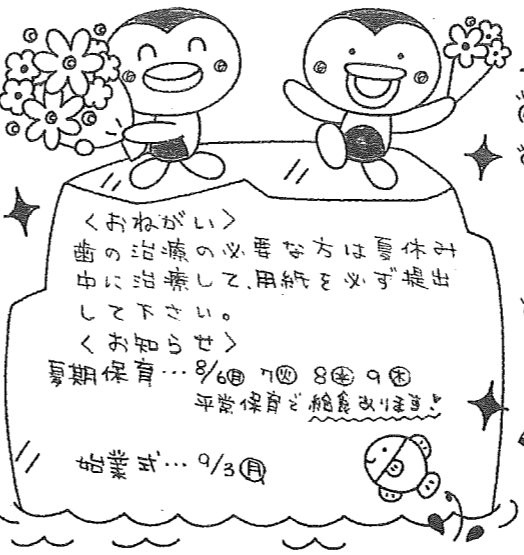 〈おねがい〉
歯の治療の必要な方は夏休み
中に治療して、用紙を必ず提出
して下さい。
〈お知らせ〉
夏期保育…8/6㊊ 7㊋ 8㊌ 9㊍
平常保育で給食あります!
始業式…9/3㊊